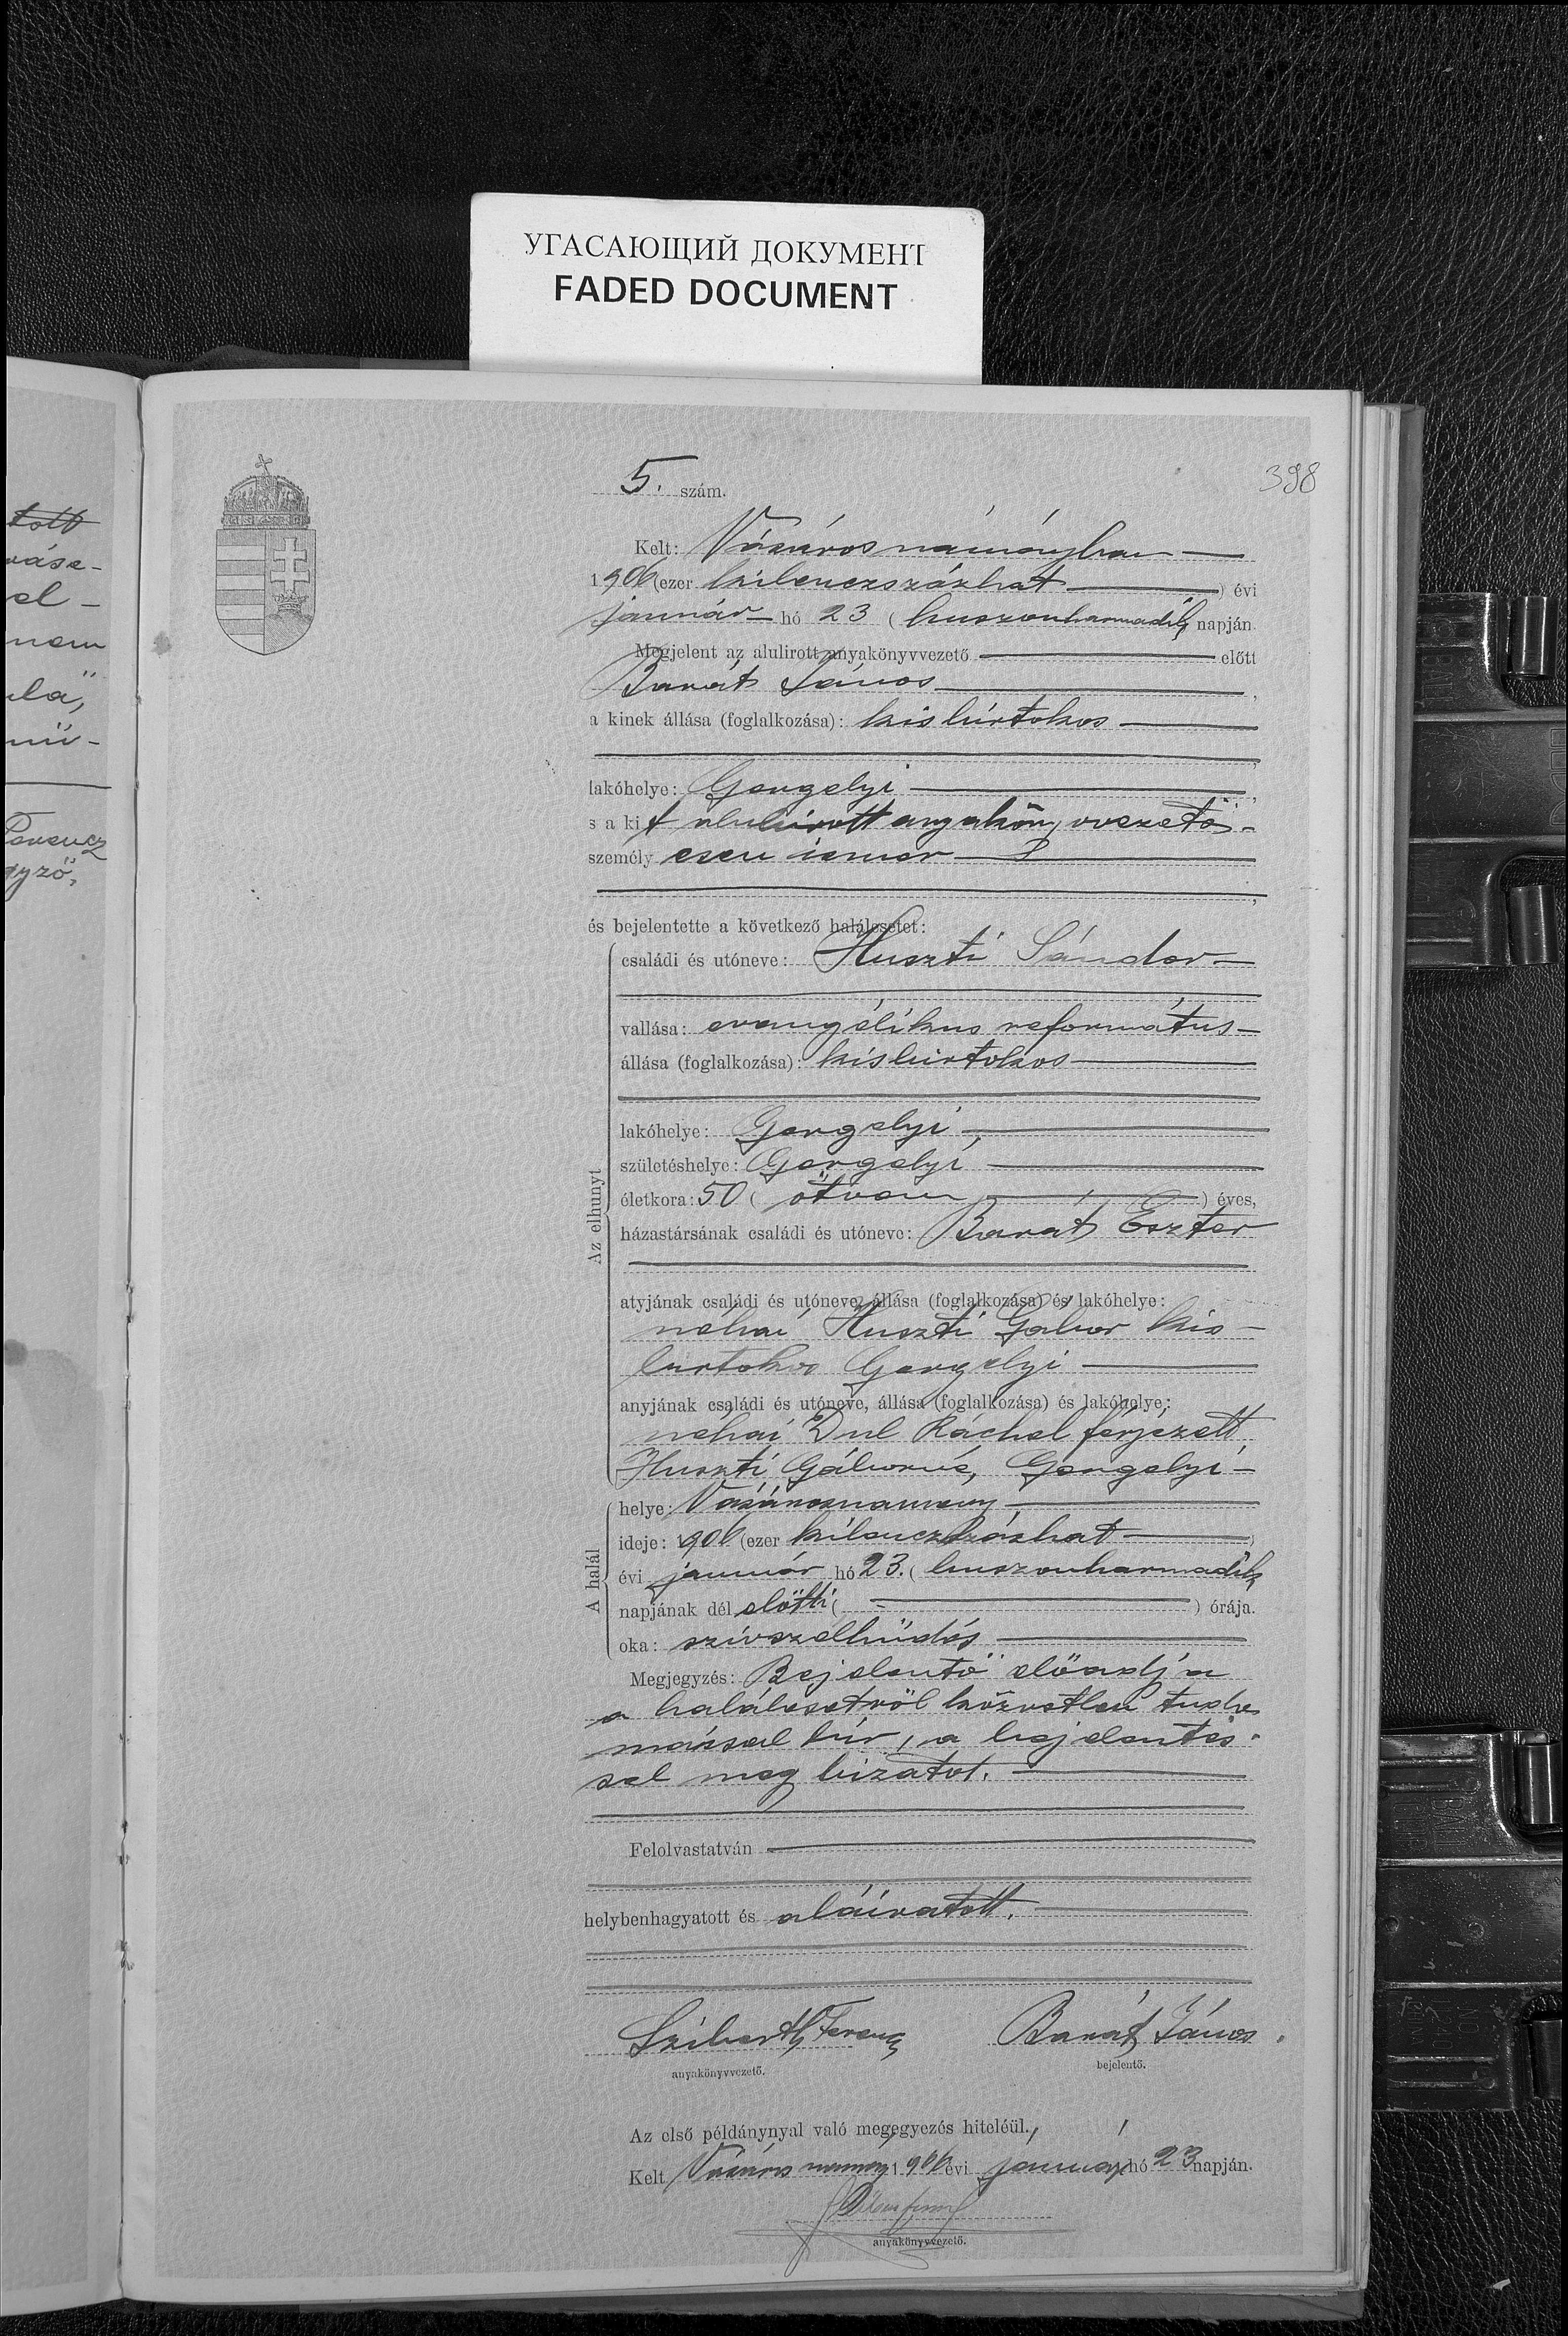 УГАСАЮЩИЙ ДОКУМЕНТ
FADED DOCUMENT
398
5. szám.
Kelt: Vásárosnaményban
1906 (ezer kilenczszázhat) évi
január hó 23 (huszonharmadik) napján.
Megjelent az alulirott anyakönyvvezető előtt
Barát János,
a kinek állása (foglalkozása): kisbirtokos
lakóhelye: Gergelyi,
s a kit alulirott anyakönyvvezető
személyesen ismer
és bejelentette a következő halálesetet:
Az elhunyt
családi és utóneve: Huszti Sándor
vallása: evangélikus református
állása (foglalkozása): kisbirtokos
lakóhelye: Gergelyi,
születéshelye: Gergelyi
életkora: 50 (ötven) éves,
házastársának családi és utóneve: Barát Eszter
atyjának családi és utóneve, állása (foglalkozása) és lakóhelye:
néhai Huszti Gábor kis-
birtokos Gergelyi
anyjának családi és utóneve, állása (foglalkozása) és lakóhelye:
néhai Dul Ráchel férjezett
Huszti Gáborné, Gergelyi
A halál
helye: Vásárosnamény
ideje: 1906 (ezer kilenczszázhat)
évi január hó 23. (huszonharmadik
napjának dél előtti ( - ) órája.
oka: szívszélhüdés
Megjegyzés: Bejelentő előadja
a halálesetről közvetlen tudo
mással bír, a bejelentés-
sel meg bizatot.
Felolvastatván
helybenhagyatott és aláiratott.
Ferencz
anyakönyvvezető.
Barát János.
bejelentő.
Az első példánynyal való megegyezés hiteléül.
Kelt Vásárosnamény 1906 évi január hó 23 napján.
anyakönyvvezető.
tott
el-
nem
Ferencz
gyző.